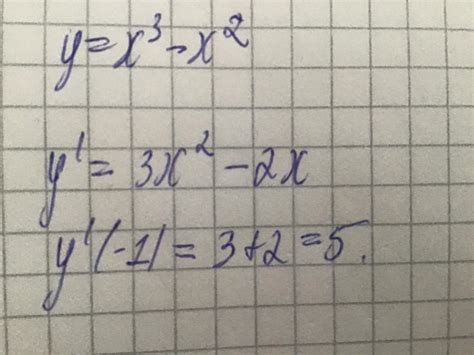 y = x³ - x²
y' = 3x² - 2x
y'(-1) = 3+2 = 5.